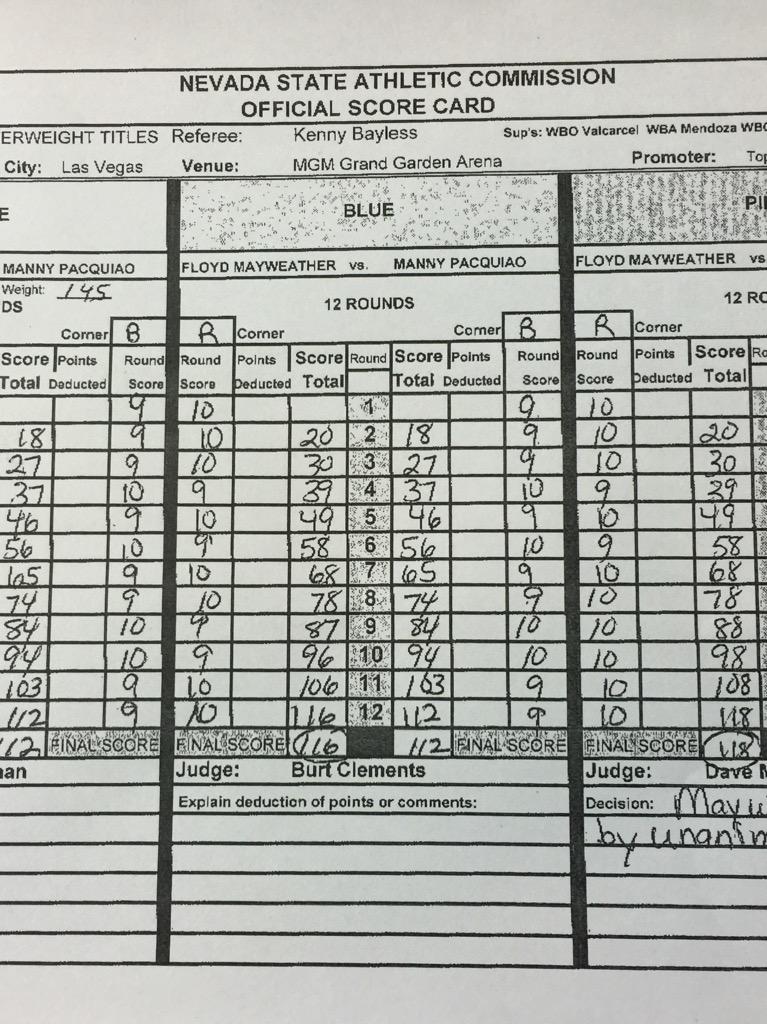 NEVADA STATE ATHLETIC COMMISSION
OFFICIAL SCORE CARD
ERWEIGHT TITLES Referee: Kenny Bayless Sup's: WBO Valcarcel WBA Mendoza WBC
City: Las Vegas Venue: MGM Grand Garden Arena Promoter: Top
E BLUE PI
MANNY PACQUIAO FLOYD MAYWEATHER vs. MANNY PACQUIAO FLOYD MAYWEATHER vs
Weight: 145
DS 12 ROUNDS 12 RO
Corner B R Corner Corner B R Corner
Score Points Round Round Points Score Round Score Points Round Round Points Score Ro
Total Deducted Score Score Deducted Total Total Deducted Score Score Deducted Total
9 10 1 9 10
18 9 10 20 2 18 9 10 20
27 9 10 30 3 27 9 10 30
37 10 9 39 4 37 10 9 39
46 9 10 49 5 46 9 10 49
56 10 9 58 6 56 10 9 58
65 9 10 68 7 65 9 10 68
74 9 10 78 8 74 9 10 78
84 10 9 87 9 84 10 10 88
94 10 9 96 10 94 10 10 98
103 9 10 106 11 103 9 10 108
112 9 10 116 12 112 9 10 118
112 FINAL SCORE FINAL SCORE 116 112 FINAL SCORE FINAL SCORE 118
an Judge: Burt Clements Judge: Dave M
Explain deduction of points or comments: Decision: Mayw
by unanim